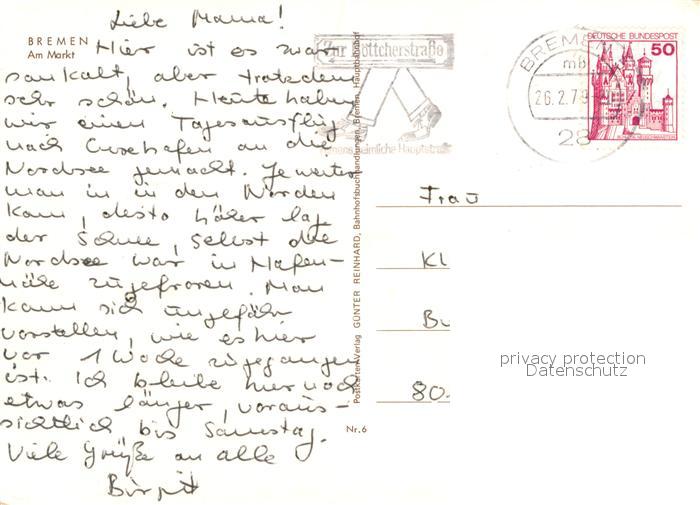 Liebe Mama!
BREMEN
Am Markt
Hier ist es zwar
saukalt, aber trotzdem
sehr schön. Heute haben
wir einen Tagesausflug
nach Cuxhafen an die
Nordsee gemacht. Je weiter
man in in den Norden
kam, desto höher lag
der Schnee, selbst die
Nordsee war in Hafen-
nähe zugefroren. Man
kann sich ungefähr
vorstellen, wie es hier
vor 1 Woche zugegangen
ist. Ich bleibe hier noch
etwas länger, voraus-
sichtlich bis Samstag.
Viele Grüße an alle
Birgit
Zur Böttcherstraße
Bremens heimliche Hauptstraße
Postkarten-Verlag GÜNTER REINHARD, Bahnhofsbuchhandlungen, Bremen, Hauptbahnhof
Nr. 6
BREMEN
mb
26.2.79
28
DEUTSCHE BUNDESPOST
50
Frau
Kl
Bu
80.
privacy protection
Datenschutz